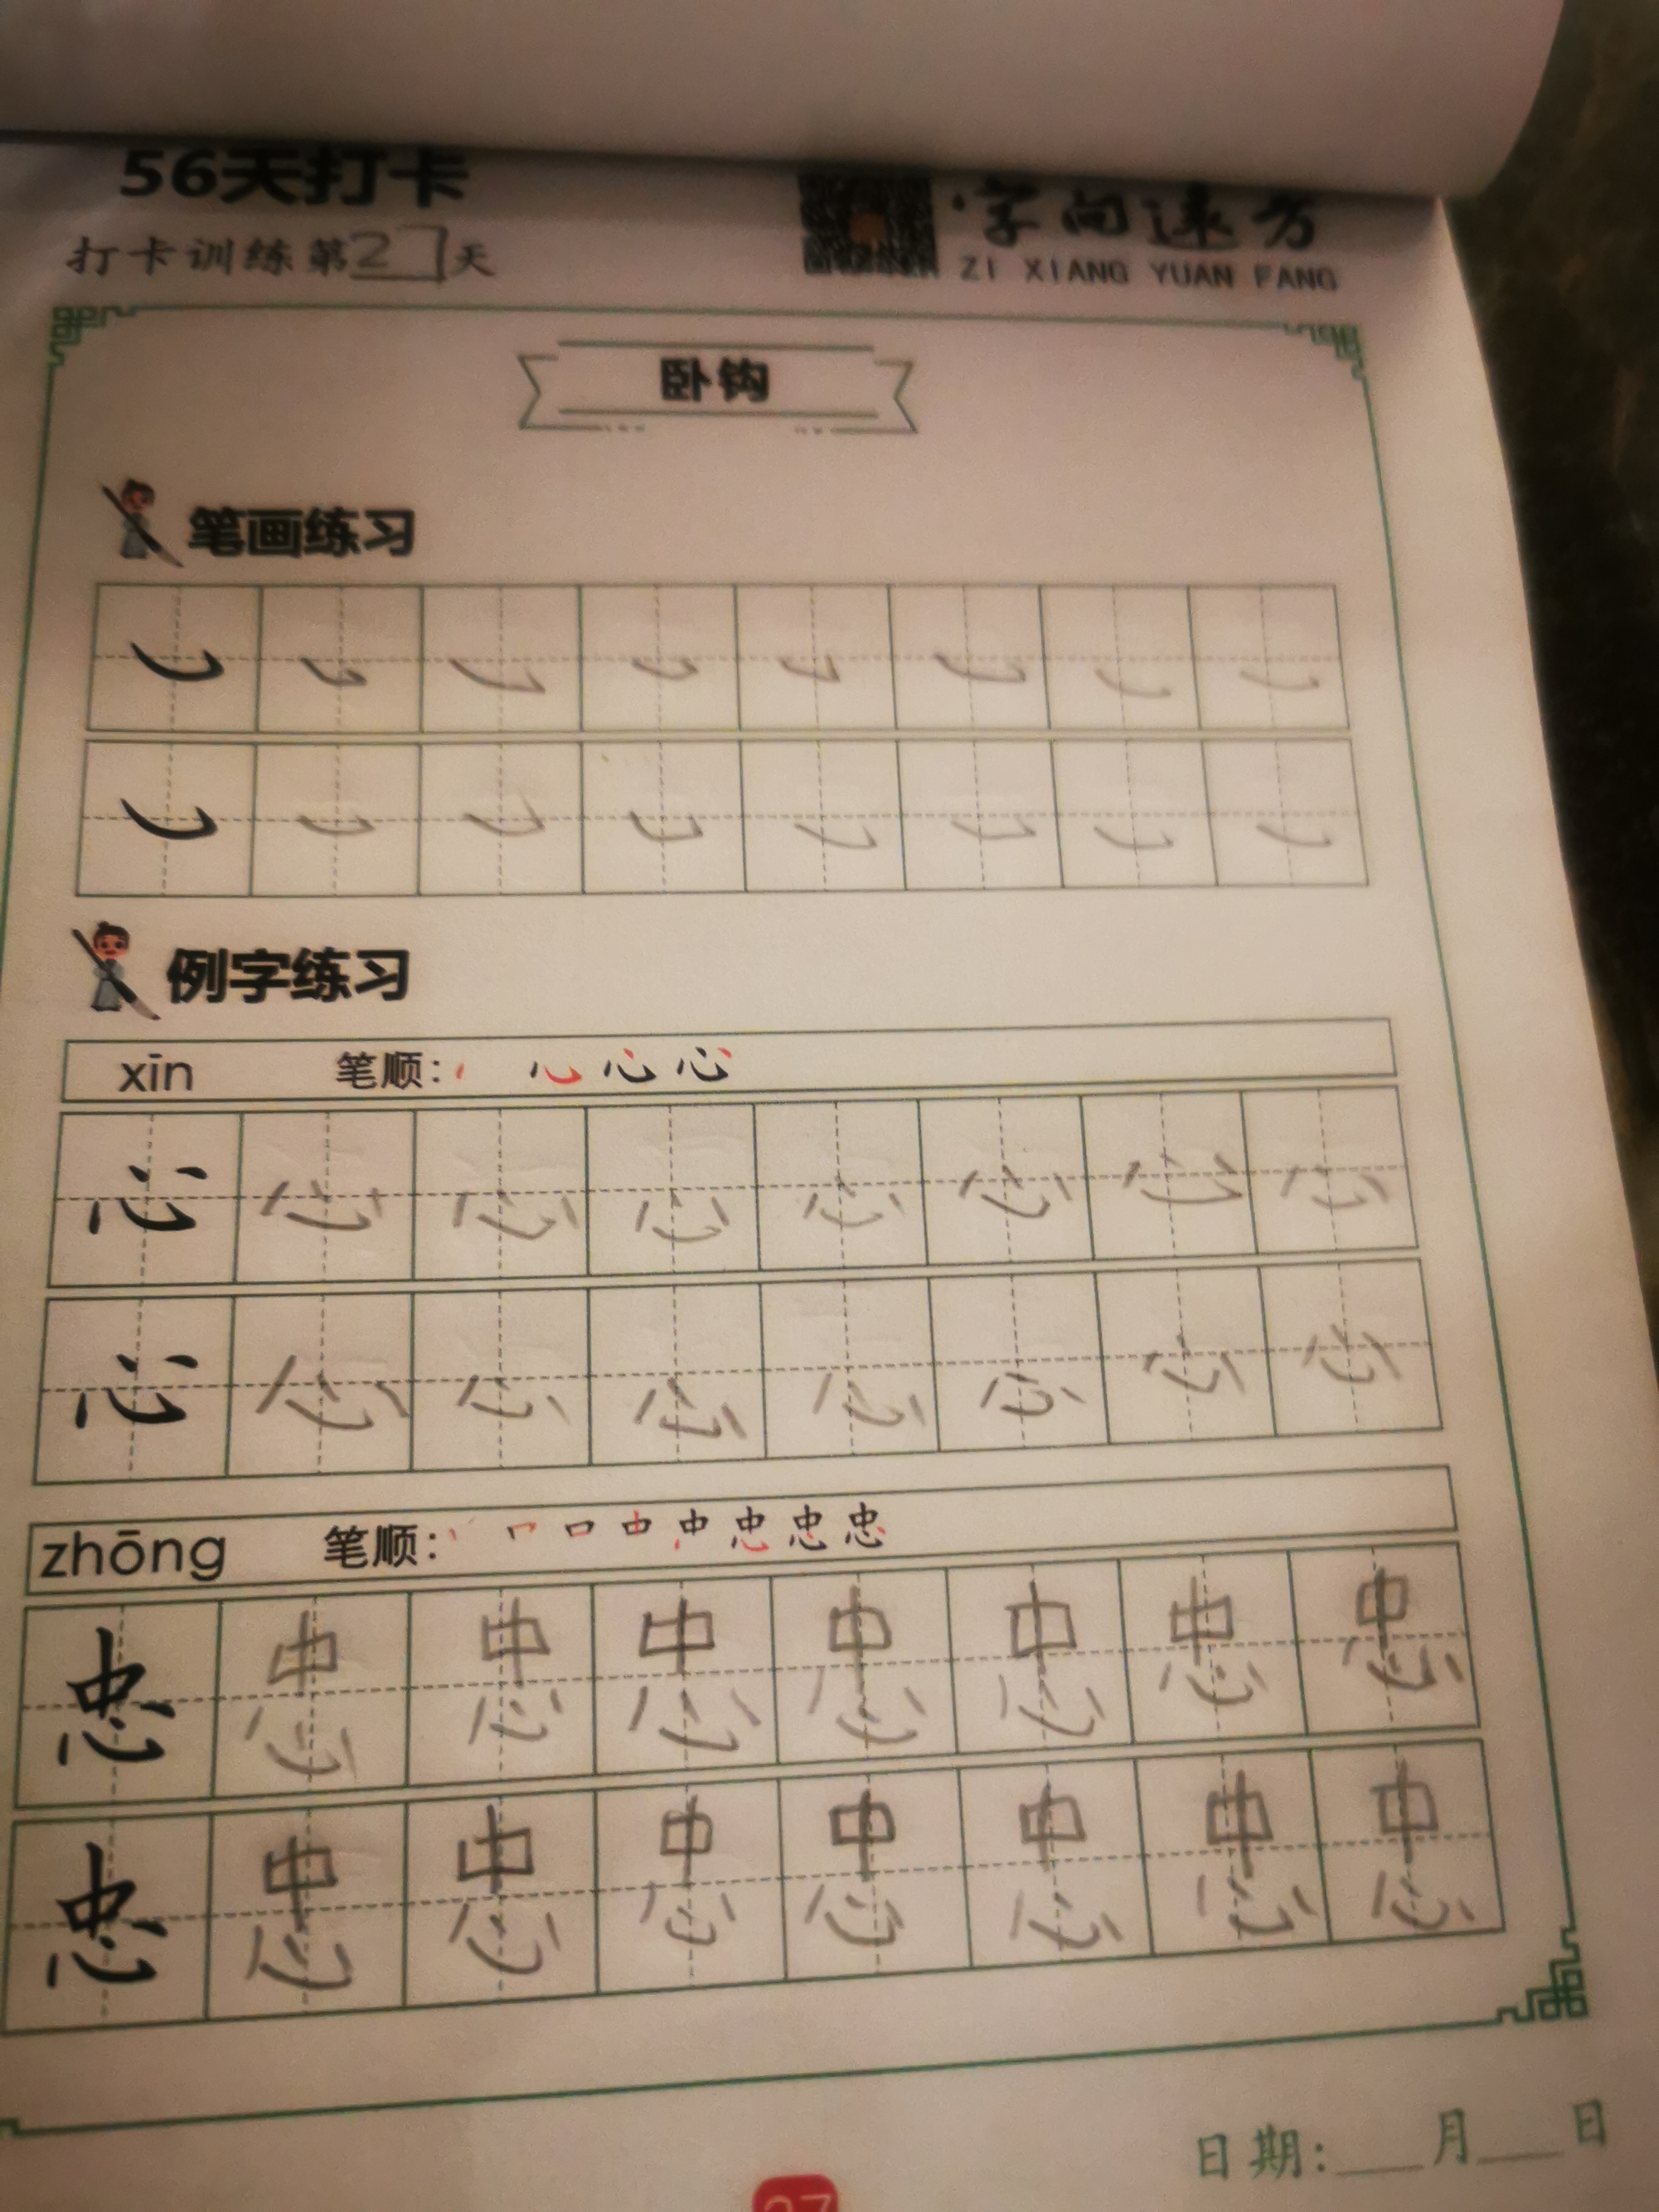 56天打卡
打卡训练第27天
·字向速方
ZI XIANG YUAN FANG
卧钩
笔画练习
㇃ ㇃ ㇃ ㇃ ㇃ ㇃ ㇃ ㇃
㇃ ㇃ ㇃ ㇃ ㇃ ㇃ ㇃ ㇃
例字练习
xīn 笔顺: 心 心 心
心 心 心 心 心 心 心 心
心 心 心 心 心 心 心 心
zhōng 笔顺: 丨 冂 口 中 中 忠 忠 忠
忠 忠 忠 忠 忠 忠 忠 忠
忠 忠 忠 忠 忠 忠 忠 忠
日期:___月___日
27